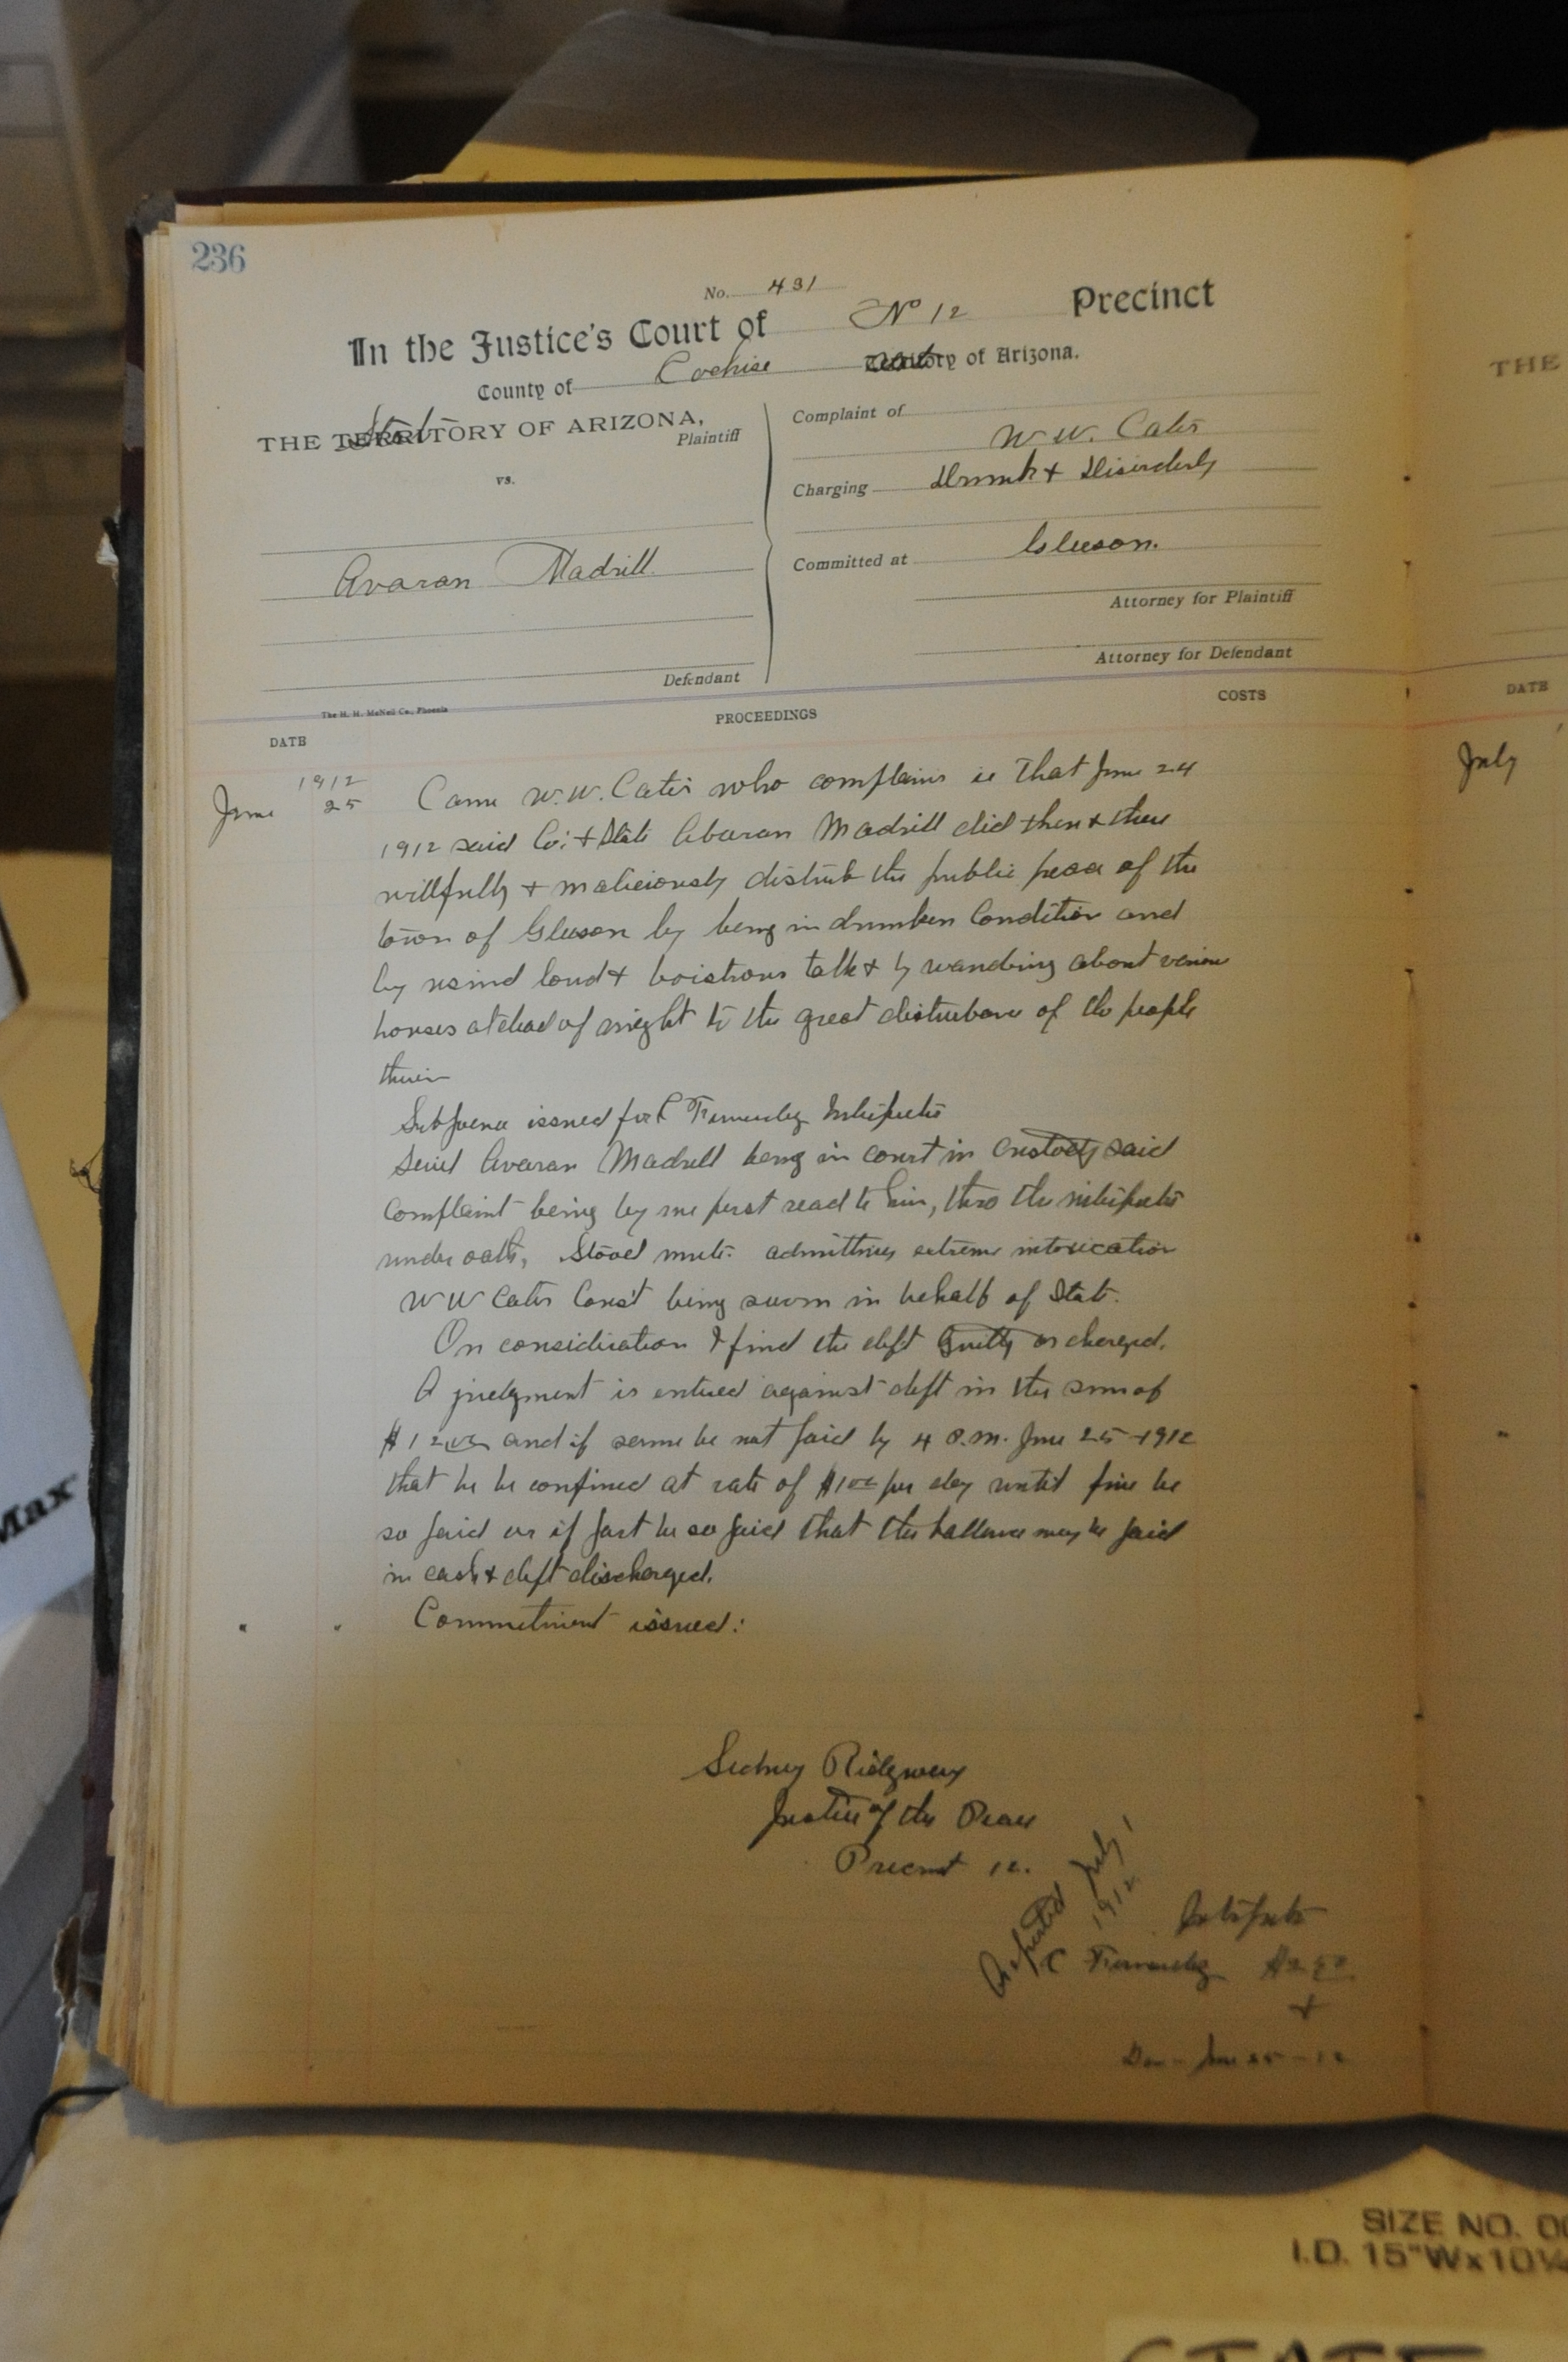 236
No. 431
In the Justice's Court of No 12 Precinct
County of Cochise State Territory of Arizona.
THE State TERRITORY OF ARIZONA,
Plaintiff
vs.
Avaran Madrill
Defendant
Complaint of
W. W. Cates
Charging Drunk & Disorderly
Committed at Gleeson.
Attorney for Plaintiff
Attorney for Defendant
The H. H. McNeil Co., Phoenix
DATE
PROCEEDINGS
COSTS
1912
June 25 Came W. W. Cates who complains ie That June 24
1912 said Co; & State Avaran Madrill did then & there
willfully & maliciously disturb the public peace of the
town of Gleeson by being in drunken Condition and
by usind loud & boistrous talk & by wandring about various
houses at dead of night to the great disturbance of the people
therein
Subpoena issued for C Interpeter
Said Avaran Madrill being in court in custody said
complaint being by me first read to him, thro the interpeter
under oath, Stood mute. admitting extreme intoxication
W W Cates Const being sworn in behalf of State.
On consideration I find the deft Guilty as charged.
A judgment is entered against deft in the sum of
$12.00 and if same be not paid by 4 P.M. June 25-1912
that he be confined at rate of $1.00 per day until fine be
so paid or if part be so paid that the ballance may be paid
in cash & deft discharged.
" " Commitment issued:
Sidney Ridgway
Justice of the Peace
Precinct 12.
Reported July 1
1912
Interpeter
C
June 25-12
THE
DATE
July
"
Max
SIZE NO.
I.D. 15"Wx10¼
STATE